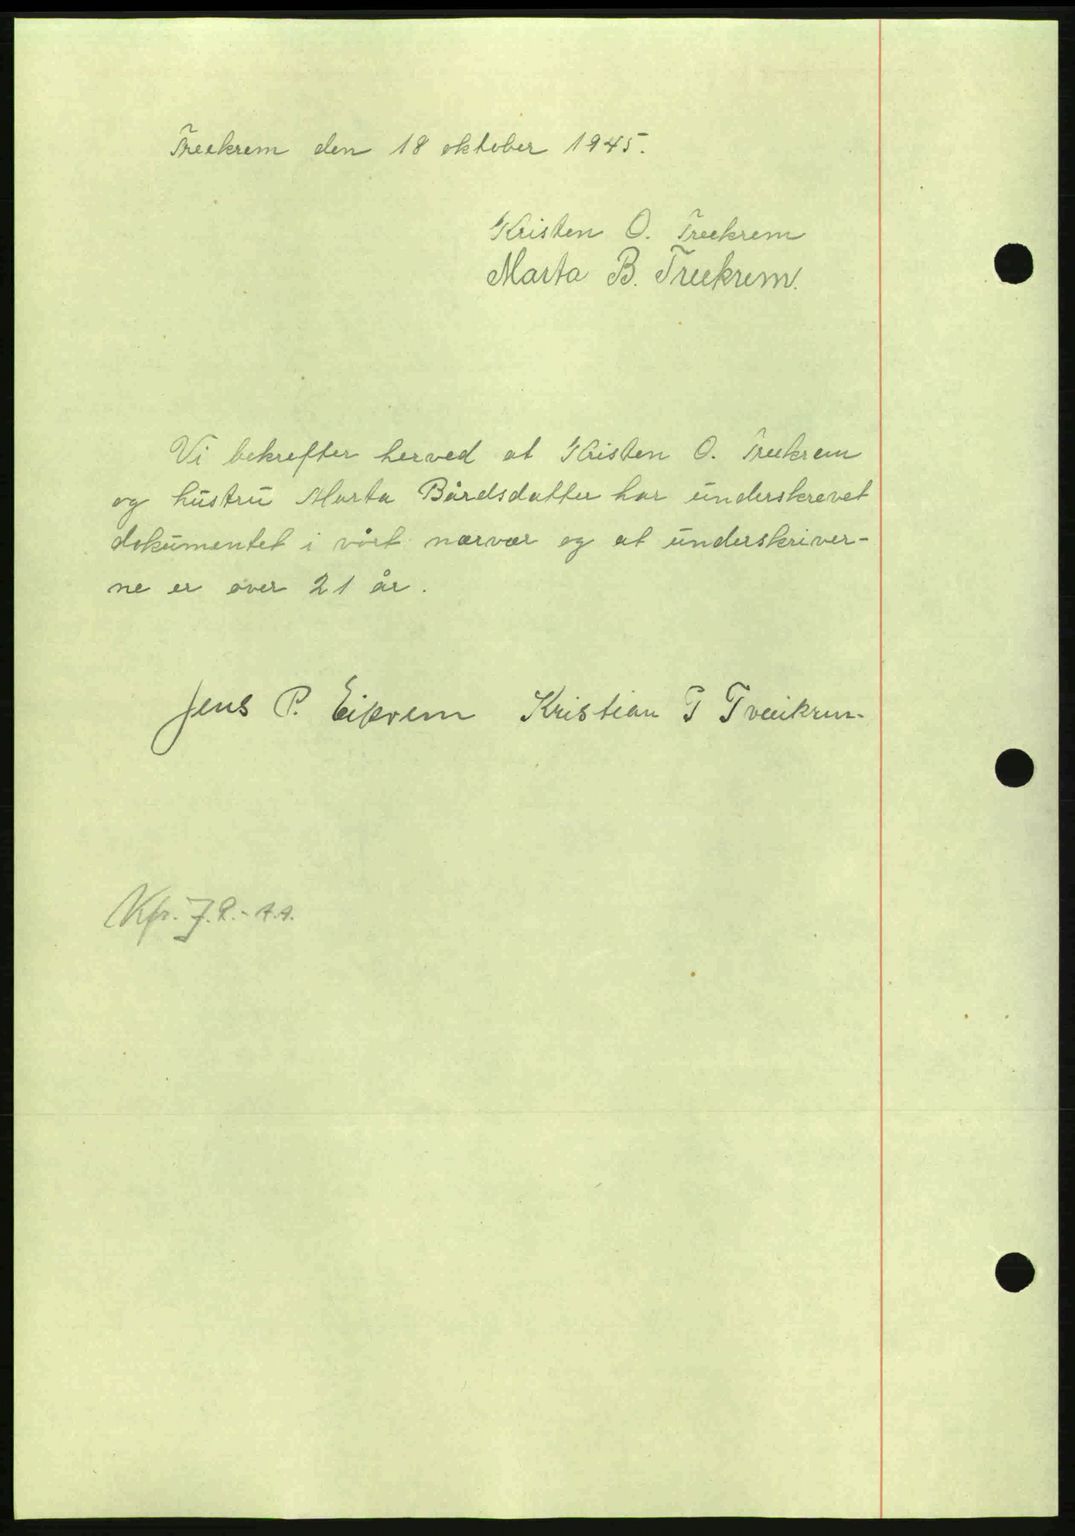 Treekrem den 18 oktober 1945.
Kristen O. Treekrem
Marta B. Treekrem.
Vi bekrefter herved at Kristen O. Treekrem
og hustru Marta Bårdsdatter har underskrevet
dokumentet i vårt nærvær og at underskriver-
ne er over 21 år.
Jens P. Eikrem Kristian P Tveeikrem
Kfr.